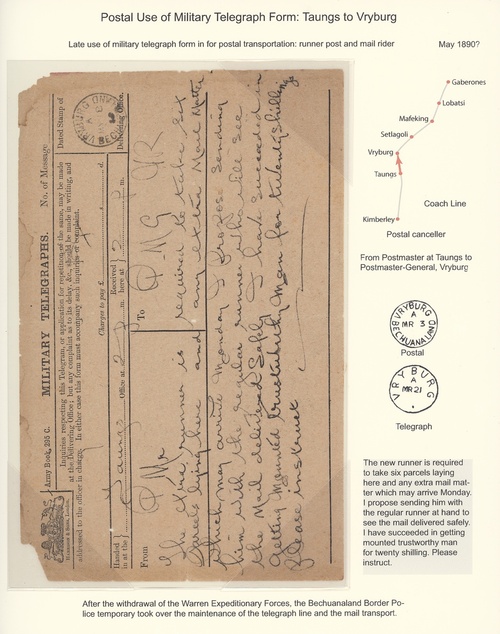 Postal Use of Military Telegraph Form: Taungs to Vryburg
Late use of military telegraph form in for postal transportation: runner post and mail rider
May 1890?
Army Book, 295 C.
MILITARY TELEGRAPHS.
No. of Message
Dated Stamp of
Delivering Office.
Inquiries respecting this Telegram, or application for repetition of the same, may be made
at the Delivering Office; but any complaint as to its delay, &c., should be made in writing, and
addressed to the officer in charge. In either case this form must accompany such inquiries or complaint.
Charges to pay £
Handed in at the
Taungs
Office at
m.
Received here at
m.
From
P Mr
To
P M G
The new runner is required to take six
parcels lying here and any extra Mail Matter
which may arrive Monday I propose sending
him with the regular runner who will see
the Mail delivered safely I have succeeded in
getting Mounted trustworthy Man for twenty shillings
Please instruct
Gaberones
Lobatsi
Mafeking
Setlagoli
Vryburg
Taungs
Kimberley
Coach Line
Postal canceller
From Postmaster at Taungs to
Postmaster-General, Vryburg
VRYBURG
A
MR 3
BECHUANALAND
Postal
VRYBURG
A
MR 21
Telegraph
The new runner is required
to take six parcels laying
here and any extra mail mat-
ter which may arrive Monday.
I propose sending him with
the regular runner at hand to
see the mail delivered safely.
I have succeeded in getting
mounted trustworthy man
for twenty shilling. Please
instruct.
After the withdrawal of the Warren Expeditionary Forces, the Bechuanaland Border Po-
lice temporary took over the maintenance of the telegraph line and the mail transport.